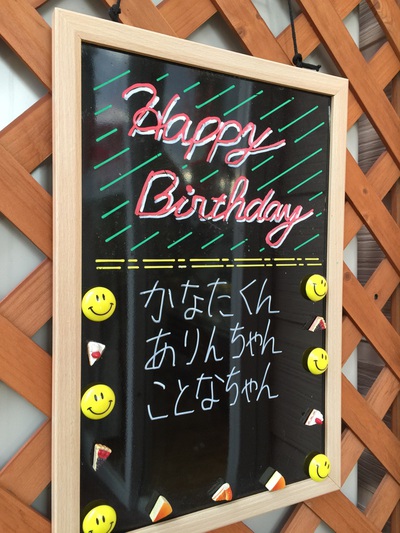 Happy
Birthday
かなたくん
ありんちゃん
ことなちゃん